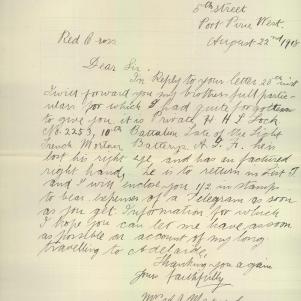 5th Street
Port Pirie West.
August 22nd 1918
Red Cross
Dear Sir.
In Reply to your letter 20th inst
I will forward you my brothers full partic-
ulars for which I had quite forgotten
to give you it is Private H H L Lock
No. 2253, 10th Battalion Late of the Light
Trench Mortar Battery A.I.F. hen
lost his right eye, and has an factured
right hand, he is to return in Sept
and I will enclose you 1/2 in stamps
to bear expenses of a Telegram as soon
as you get Information for which
I hope you can let me have as soon
as possible on account of my long
travelling to Adelaide.
Thanking you again
Yours Faithfully